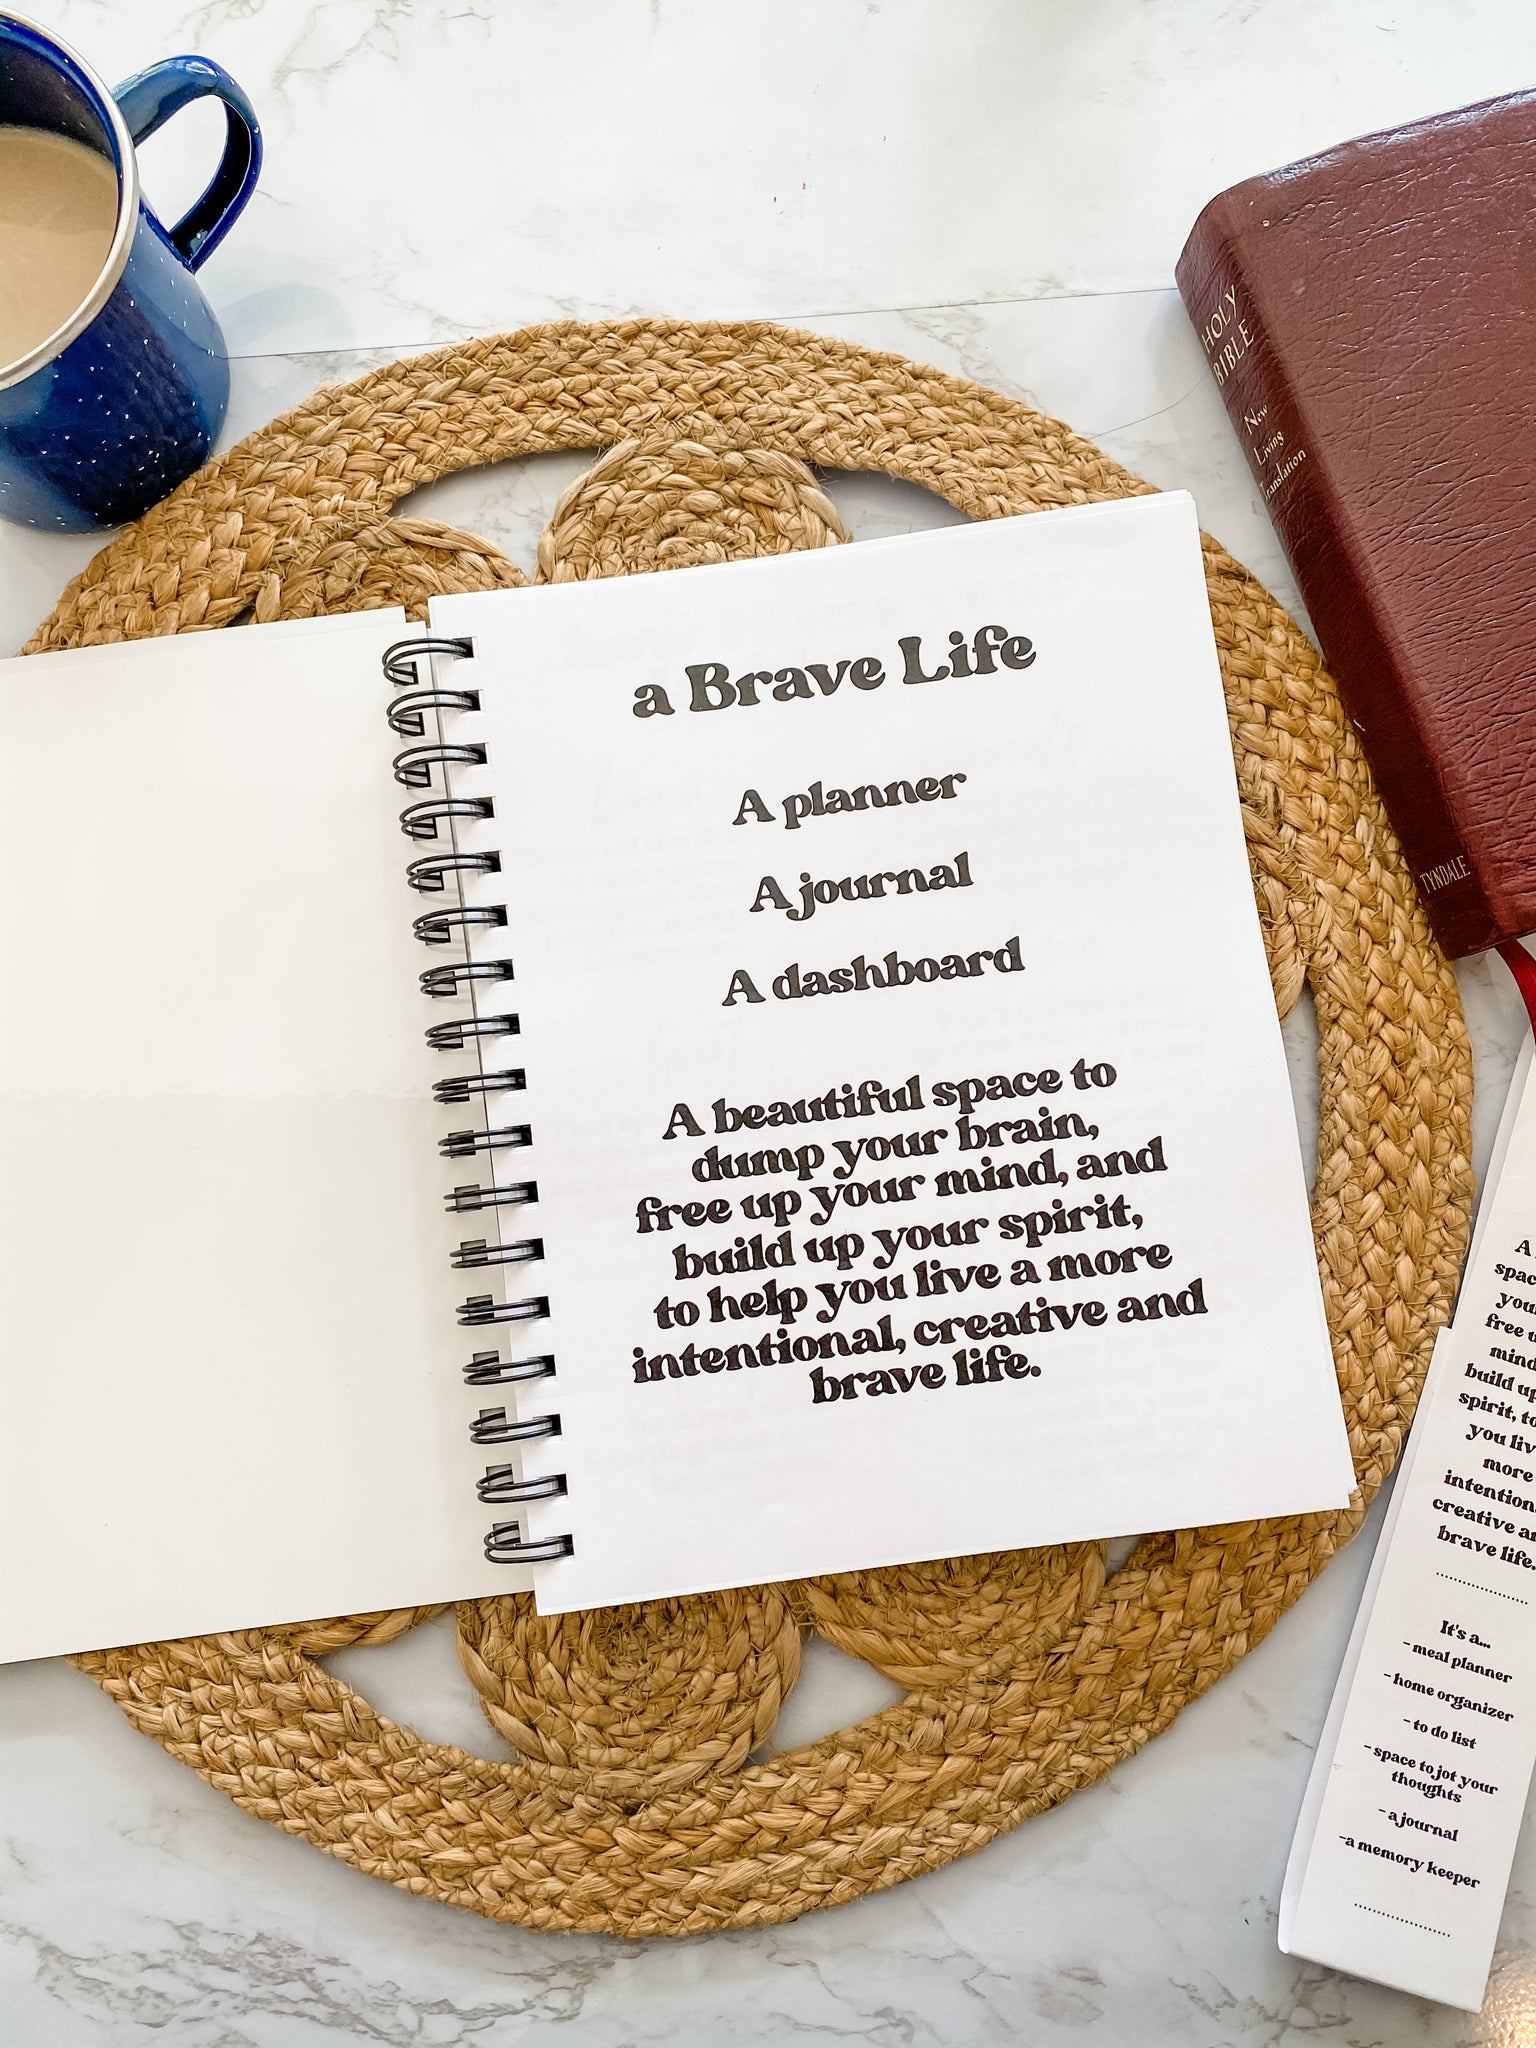 a Brave Life
A planner
A journal
A dashboard
A beautiful space to
dump your brain,
free up your mind, and
build up your spirit,
to help you live a more
intentional, creative and
brave life.
HOLY
BIBLE
New
Living
Translation
TYNDALE
A
spac
you
free u
mind
build up
spirit, to
you liv
more
intention
creative a
brave life.
It's a...
- meal planner
- home organizer
- to do list
- space to jot your
thoughts
- a journal
-a memory keeper